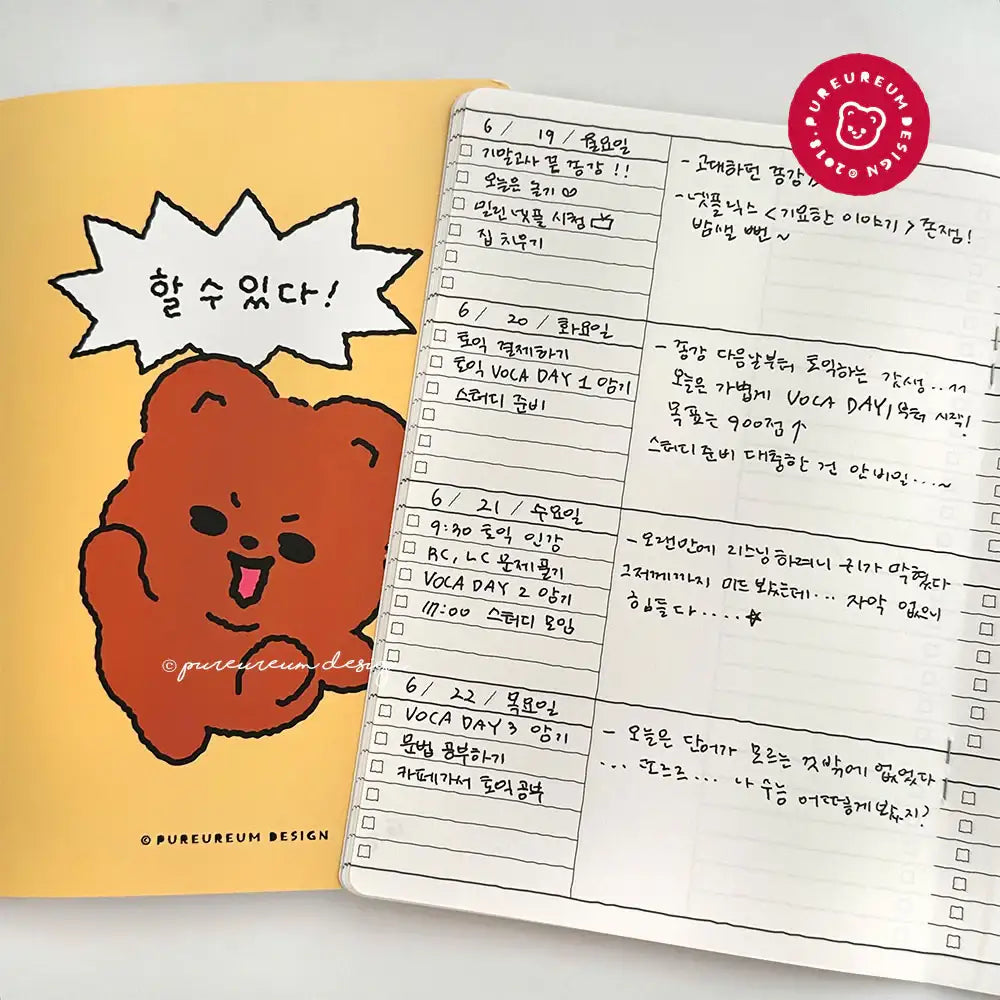 할 수 있다!
© pureureum design
© PUREUREUM DESIGN
PUREUREUM DESIGN © 2018.
6 / 19 / 월요일
기말고사 끝 종강 !!
오늘은 놀기 ♡
밀린 넷플 시청
집 치우기
- 고대하던 종강
- 넷플릭스 <기묘한 이야기> 존잼!
밤샐 뻔~
6 / 20 / 화요일
토익 결제하기
토익 VOCA DAY 1 암기
스터디 준비
- 종강 다음날부터 토익하는 갓생..ㅜㅜ
오늘은 가볍게 VOCA DAY1부터 시작!
목표는 900점↑
스터디 준비 대충한 건 안 비밀...~
6 / 21 / 수요일
9:30 토익 인강
RC, LC 문제 풀기
VOCA DAY 2 암기
17:00 스터디 모임
- 오랜만에 리스닝 하려니 귀가 막혔다
그저께까지 미드 봤는데... 자막 없으니
힘들다....☆
6 / 22 / 목요일
VOCA DAY 3 암기
문법 공부하기
카페가서 토익공부
- 오늘은 단어가 모르는 것밖에 없었다
... 또르르... 나 수능 어떠렇게 봤지?